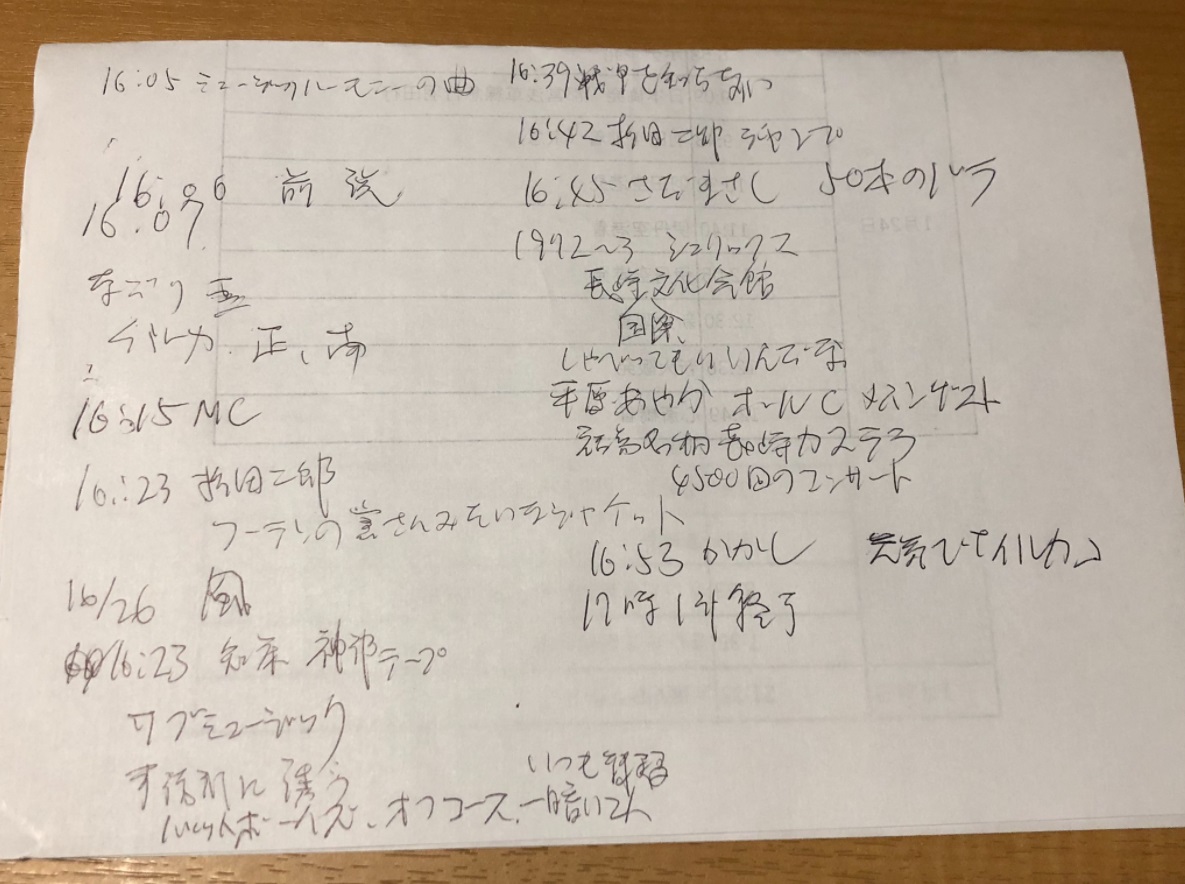 16:05 ミュージックハーモニーの曲
16:06 前説
16:07
なごり雪
イルカ、正、南
16:15 MC
16:23 杉田二郎
フーテンの寅さんみたいなジャケット
16/26 風
16:23 神部テープ
ミュージック
に誘う
オフコース、一暗い
いつも練習
16:39 戦争を知らない
16:42 杉田二郎 ジャンプ
16:45 さだまさし 50本のバラ
1972~3 シュリークス
文化会館
国際
しゃべってもいいんだな
平原あやか オールC メインゲスト
長崎カステラ
4500回のコンサート
16:53 かかし 元気ですイルカ
17時1分終了